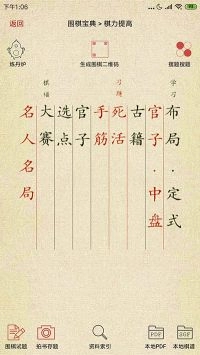 下午1:06
返回
围棋宝典 > 棋力提高
炼丹炉
生成围棋二维码
学习
布局·定式
官子·中盘
古籍
习题
死活
手筋
官子
选点
棋谱
大赛
名人名局
围棋试题
拍书存题
资料索引
PDF
本地PDF
本地棋谱